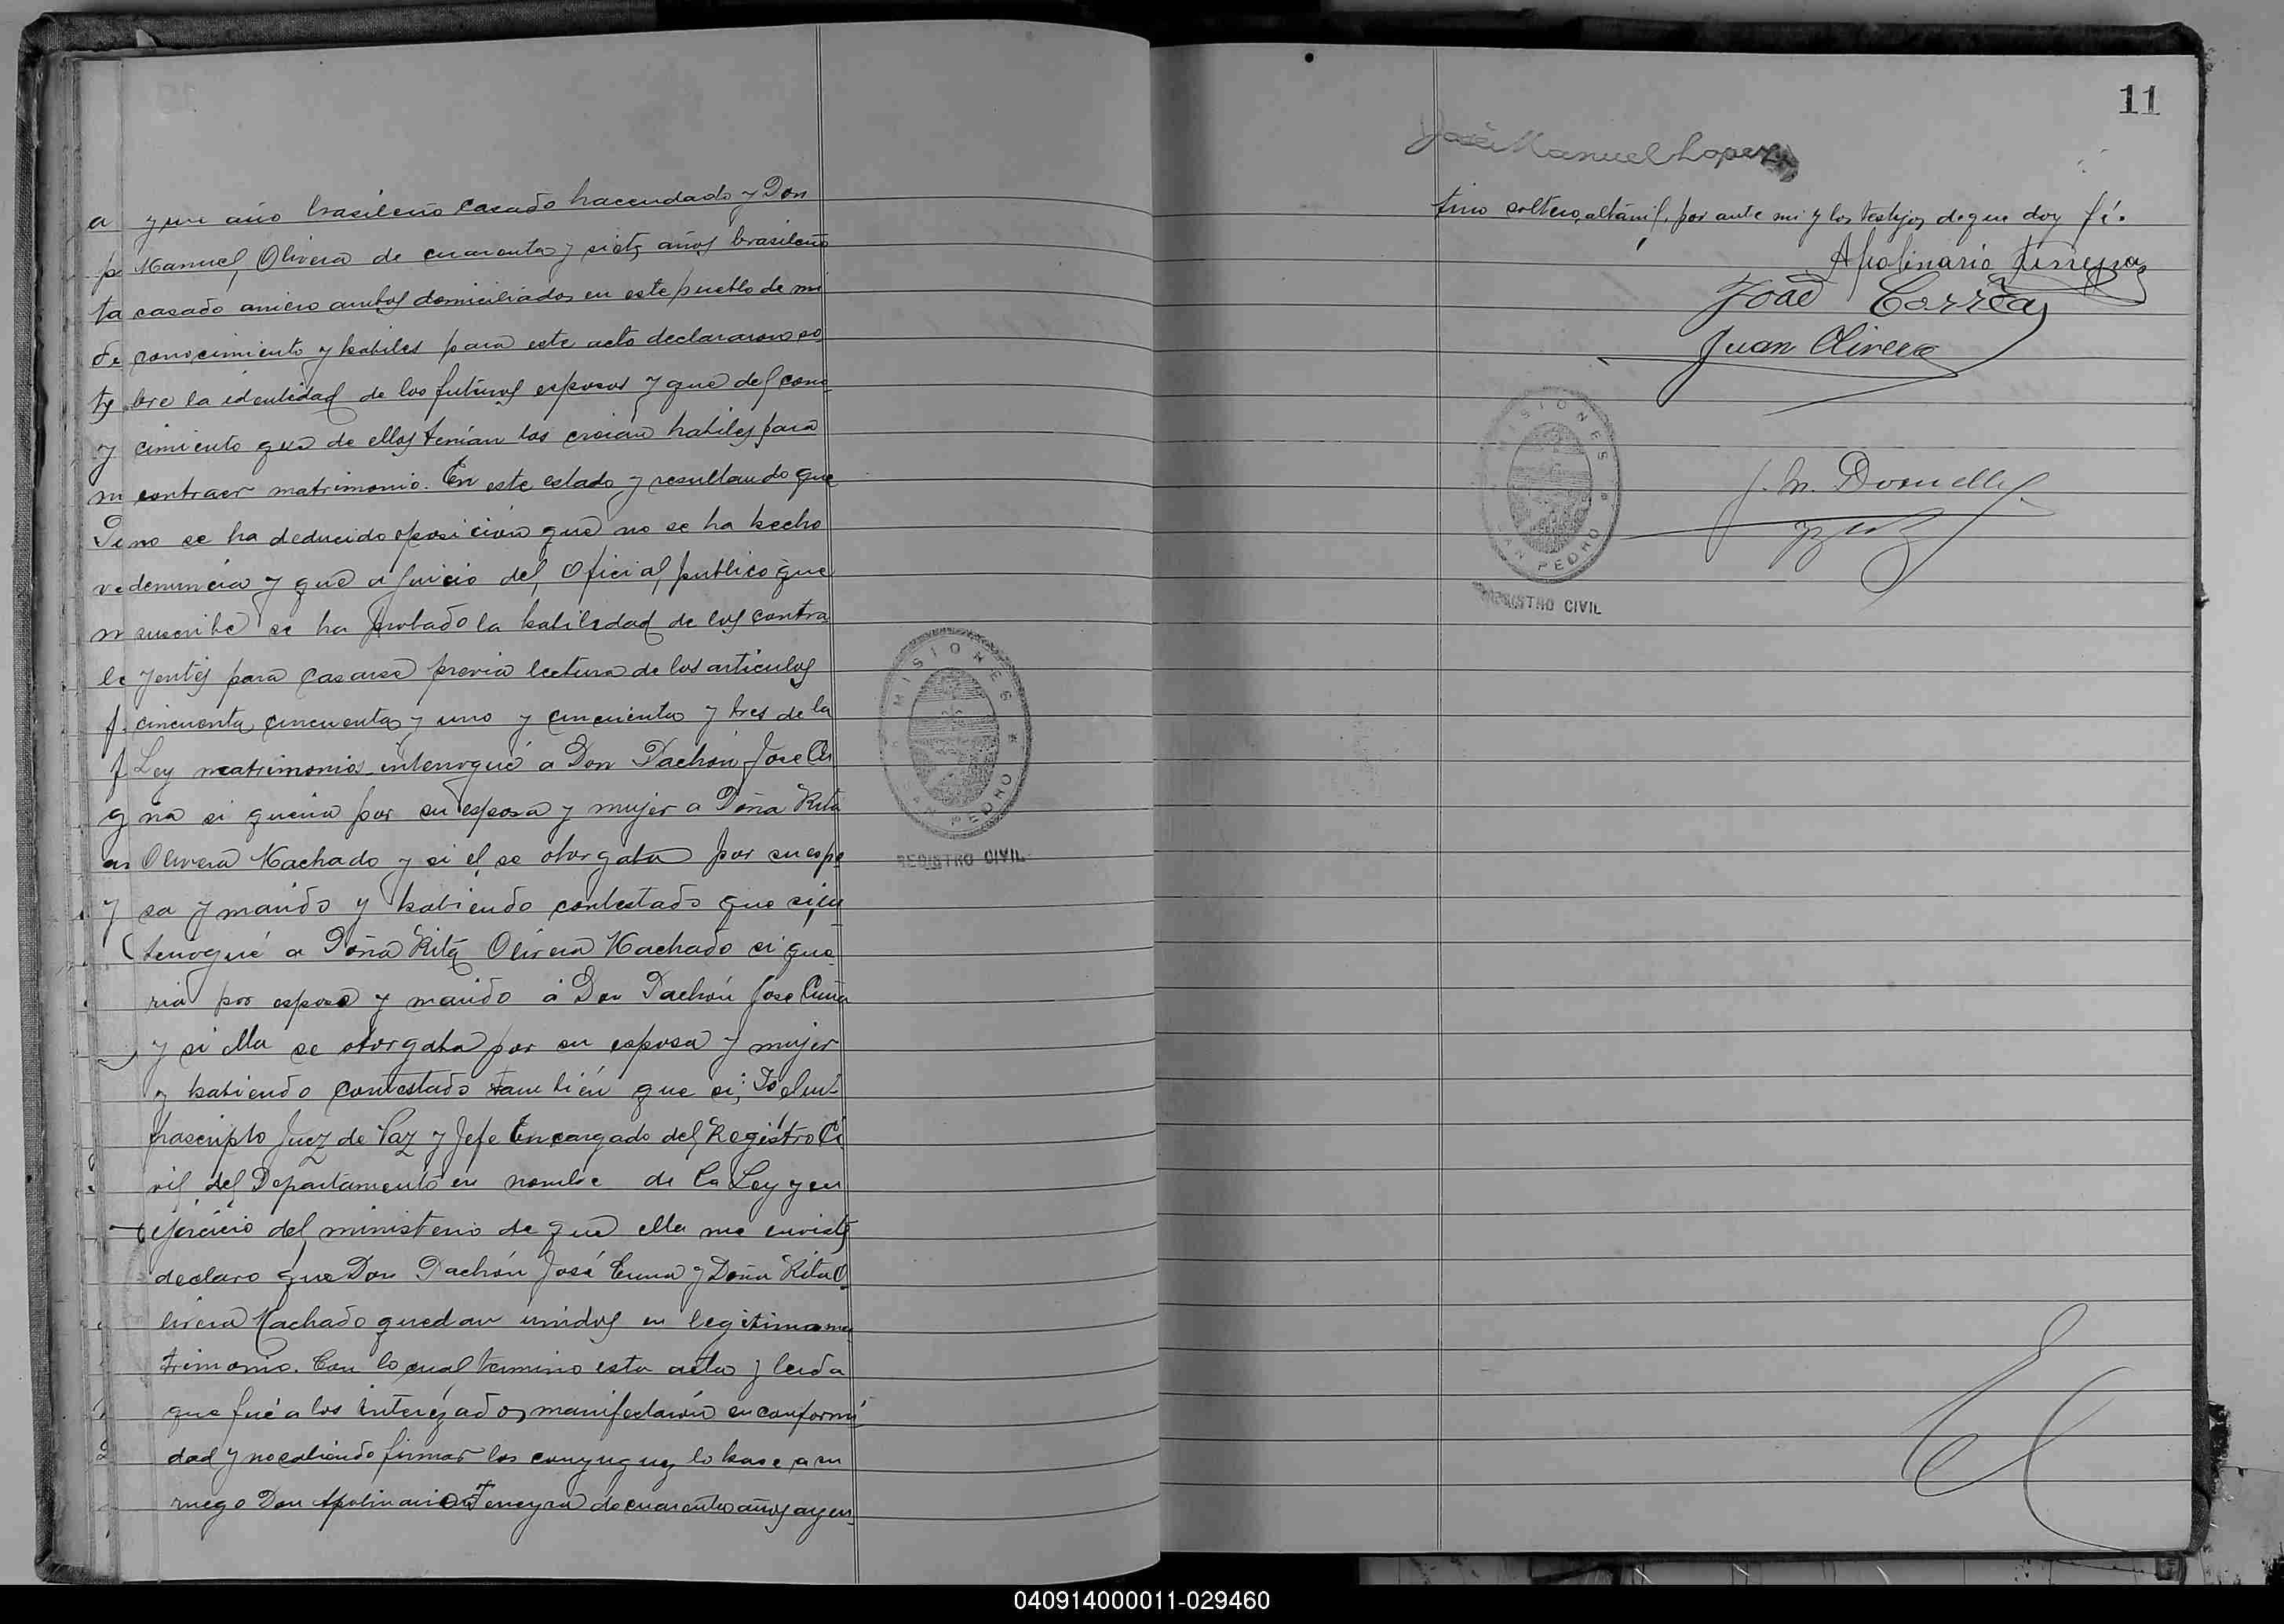 y un año brasileño casado hacendado y Don
Manuel Olivera de cuarenta y siete años brasileño
casado arriero ambos domiciliados en este pueblo de mi
conocimiento y habiles para este acto declararon so
bre la identidad de los futuros esposos y que del cono
cimiento que de ellos tenian los creian habiles para
contraer matrimonio. En este estado y resultando que
no se ha deducido oposicion que no se ha hecho
denuncia y que a juicio del Oficial publico que
suscribe se ha probado la habilidad de los contra
yentes para casarse previa lectura de los articulos
cincuenta, cincuenta y uno y cincuenta y tres de la
Ley matrimonios interrogué a Don Pachón Jose Cu
ña si queria por su esposa y mujer a Doña Rita
Olivera Machado y si el se otorgaba por su espo
so y marido y habiendo contestado que si, in
terrogué a Doña Rita Olivera Machado si que
ria por esposo y marido á Don Pachón Jose Cuña
y si ella se otorgaba por su esposa y mujer
y habiendo contestado tambien que si; Yo el in-
frascripto Juez de Paz y Jefe Encargado del Registro Ci
vil del Departamento en nombre de la Ley y en
ejercicio del ministerio de que ella me enviste
declaro que Don Pachón José Cuña y Doña Rita O
livera Machado quedan unidos en legitimo ma
trimonio. Con lo cual termino esta acta y leida
que fué a los interezados manifestaron su conformi
dad y no sabiendo firmar los conyuguez lo hase a su
ruego Don Apolinario Ferreyra de cuarenta años argen
MISIONES
SAN PEDRO
REGISTRO CIVIL
11
José Manuel Lopez
tino soltero, albañil, por ante mi y los testigos de que doy fé.
Apolinario Ferreyra
Joaõ Corrêa
Juan Olivera
MISIONES
SAN PEDRO
REGISTRO CIVIL
040914000011-029460